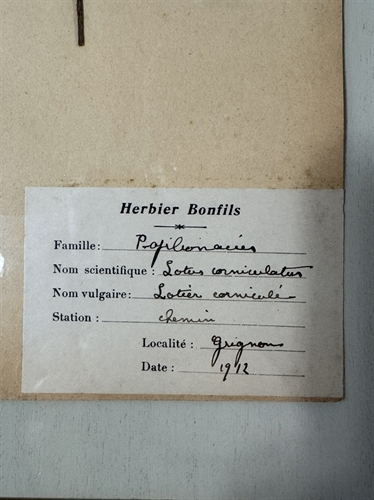 Herbier Bonfils
Famille: Papilionacées
Nom scientifique : Lotus corniculatus
Nom vulgaire: Lotier corniculé
Station : chemin
Localité : Grignon
Date : 1912